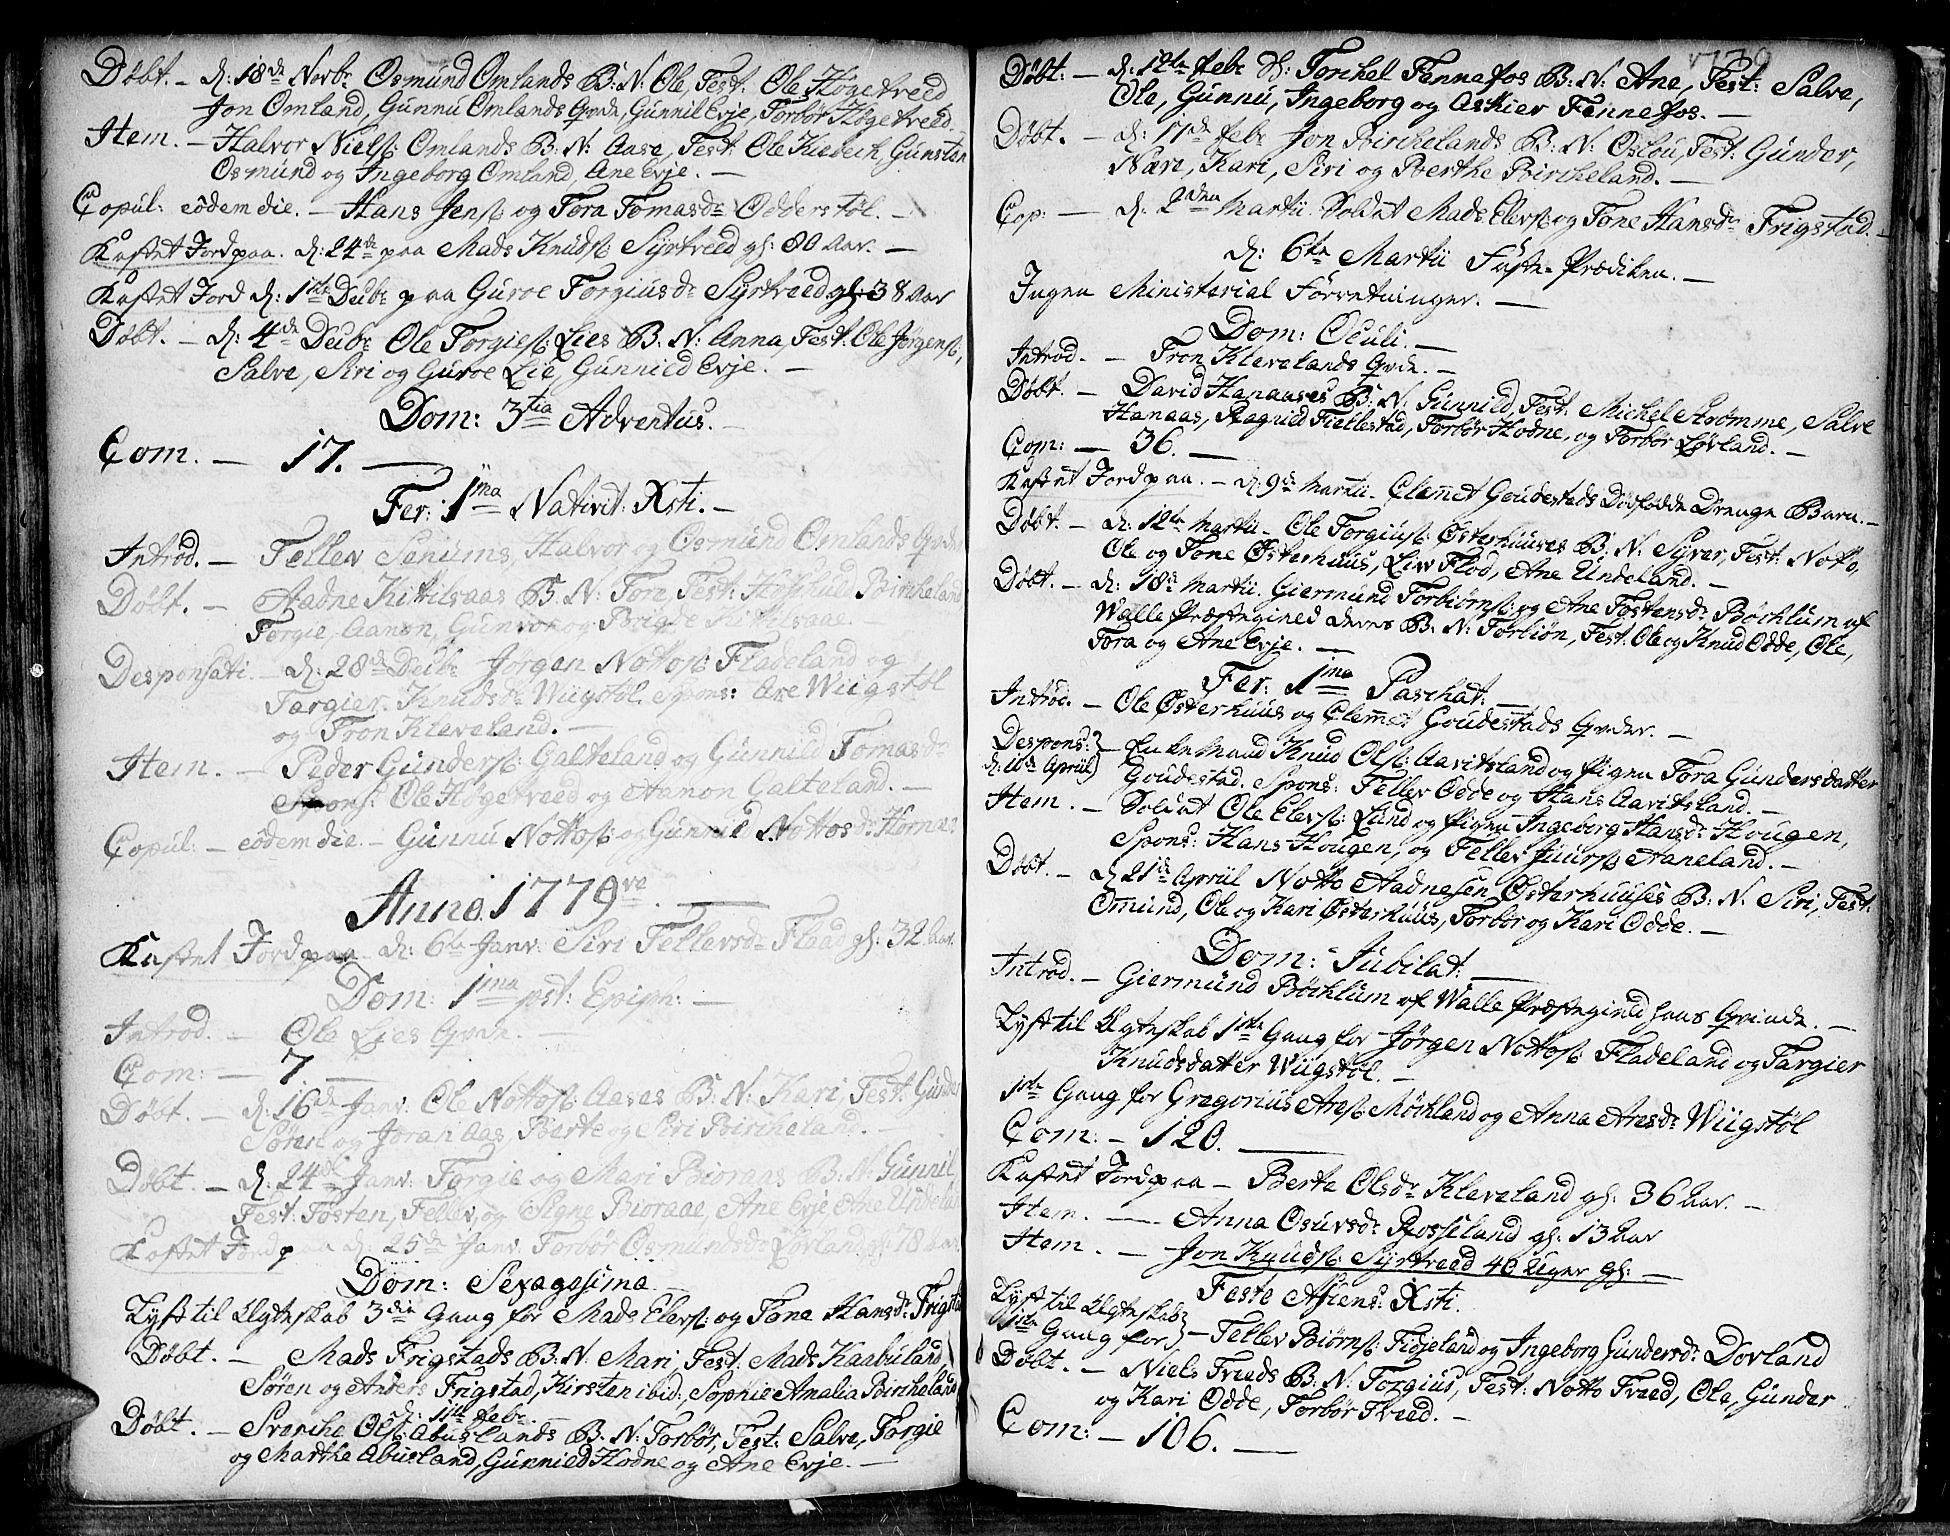 Døbt. - d: 18de Novbr Osmund Omlands B: N: Ole, Test: Ole Høgetveed
Jon Omland, Gunnu Omlands Qvde, Gunnil Evje, Torbør Høgetveed.
Item. - Halvor Nielsß: Omlands B: N: Aase, Test: Ole Kiebech, Gunsten
Osmund og Ingeborg Omland, Ane Evje. -
Copul: eodem die. - Hans Jensß og Tora Tomasdr Odderstøl. -
Kastet Jord paa. d: 24de paa Mads Knudsß: Syrtveed gl: 80 Aar. -
Kastet Jord d: 1ste Decbr paa Guroe Torgiusdr Syrtveed gl: 38 Aar
Døbt. - d: 4de Decbr Ole Torgiesß: Lies B: N: Anna, Test: Ole Jørgensß,
Salve, Siri og Guroe Lie, Gunnild Evje. -
Dom: 3tia Adventus. -
Com. - 17. -
Fer: 1ma Nativit: Xsti. -
Introd. - Tellev Senums, Halvor og Osmund Omlands Qvder
Døbt. - Aadne Kittilsaas B: N: Tore, Test: Birkeland
Torgie, Aanon, Gunvor og Kittilsaae. -
Desponsati. - d: 28de Decbr Jørgen Nottosß: Fladeland og
Targier Knudsdr Wiigstøl. Spons: Are Wiigstøl
og Tron Klaveland. -
Item. - Peder Gundersß: Galteland og Gunnild Tomasdr
Spons: Ole Høgetveed og Aanon Galteland. -
Copul: - eodem die. - Gunnu Nottosß: og Gunnild Nottosdr Hornes
Anno. 1779ve. -
Kastet Jord paa d: 6te Janv: Siri Tellevsdr Flaad gl: 32 Aar.
Dom: 1ma post: Epiph: -
Introd. - Ole Lies Qvde. -
Com: - 7 -
Døbt. - d: 16de Janv: Ole Nottosß: Aases B: N: Kari, Test: Gunder
Søren og Joran Aas, Berte og Siri Birkeland. -
Døbt. - d: 24de Janv: Torgie og Mari Bioraas B: N: Gunnil
Test: Tosten, Tellev, og Signe Bioraae, Ane Evje Ane Undeland
Kastet Jord paa d: 25de Janv. Torbør Osmundsdr Løvland gl: 78 Aar
Dom: Sexagesima. -
Lyst til Ægteskab 3die Gang for Mads Elevsß: og Tone Hansdr Frigstad
Døbt. - Mads Frigstads B: N: Mari, Test: Mads Kaabuland,
Søren og Anders Frigstad, Kirsten ibid: Sophie Amalia Birkeland
d: 11te Febr.
Døbt. - Svenche Olsß: Abuslands B: N: Torbør, Test: Salve, Torgie
og Marthe Abusland, Gunnild Hodne og Ane Evje. -
Døbt. - d: 12te Febr Torkel Fennefos B: N: Ane, Test: Salve,
Ole, Gunnu, Ingeborg og Askier Fennefos. -
Døbt. - d: 17de Febr Jon Birkelands B: N: Oslou, Test: Gunder,
Næri, Kari, Siri og Berthe Birkeland. -
Cop: - d: 2den Martii Soldat Mads Elevsß: og Tone Hansdr Frigstad. -
d: 6te Martii Faste-Prædiken. -
Ingen Ministerial Forretninger. -
Dom: Oculi. -
Introd. - Tron Klavelands Qvde. -
Døbt. - David Hanaases B: N: Gunnild, Test: Michel Strømme, Salve
Hanaas, Ragnild Fiellestad, Torbør Hodne, og Torbør Løvland. -
Com: - 36. -
Kastet Jord paa. - d: 9de Martii Clemet Goudestads Dødfødde Drenge Barn. -
Døbt. - d: 12te Martii Ole Torgiusß: Østerhuuses B: N: Syver, Test: Notto,
Ole og Tone Østerhuus, Liv Flod, Ane Undeland. -
Døbt. - d: 18de Martii Giermund Torbiørnsß: og Ane Tostensdr Bøchlum af
Walle Præstegield deres B: N: Torbiøn, Test: Ole og Knud Odde, Ole,
Tora og Ane Evje. -
Fer: 1ma Paschat: -
Introd. - Ole Østerhuus og Clemet Goudestads Qvder. -
Despons: d: 10de April - Enkemand Knud Olsß: Aavitsland og Pigen Tora Gundersdatter
Goudestad. Spons: Tellev Odde og Hans Aavitsland. -
Item. - Soldat Ole Elevsß: Lund og Pigen Ingeborg Hansdr Hougen,
Spons: Hans Hougen, og Tellev Juursß: Aaneland. -
Døbt. - d: 21de April Notto Aadnesen Østerhuuses B: N: Siri, Test:
Omund, Ole og Kari Østerhuus, Torbør og Kari Odde. -
Dom: Jubilat: -
Introd. - Giermund Bøchlum af Walle Præstegield hans Qvinde. -
Lyst til Ægteskab 1ste Gang for Jørgen Nottosß: Fladeland og Targier
Knudsdatter Wiigstøl. -
1ste Gang for Gregorius Aresß: Møchland og Anna Aresdr Wiigstøl
Com: - 120. -
Kastet Jord paa - Berte Olsdr Klaveland gl: 36 Aar. -
Item. - Anna Osuvsdr Rosseland gl: 13 Aar
Item. - Jon Knudsß: Syrtveed 40 Uger gl: -
Festo Ascens: Xsti.
Lyst til Ægteskab
1ste Gang for - Tellev Biørnsß: Fidjeland og Ingeborg Gundersdr Dovland
Døbt. - Niels Treeds B: N: Torgius, Test: Notto Treed, Ole, Gunder
og Kari Odde, Torbør Treed. -
Com: - 106. -